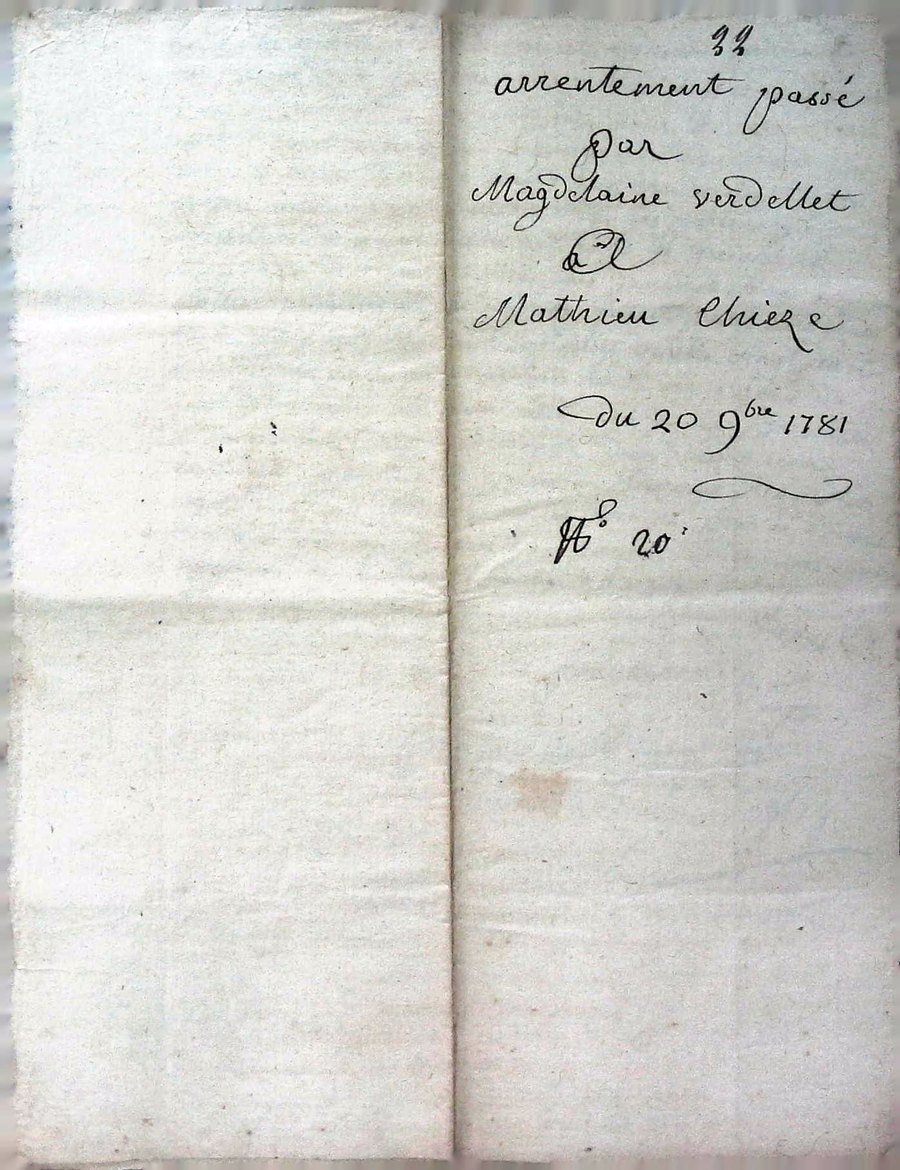 22
arrentement passé
par
Magdelaine verdellet
a
Mathieu Chieze
du 20 9bre 1781
N° 20